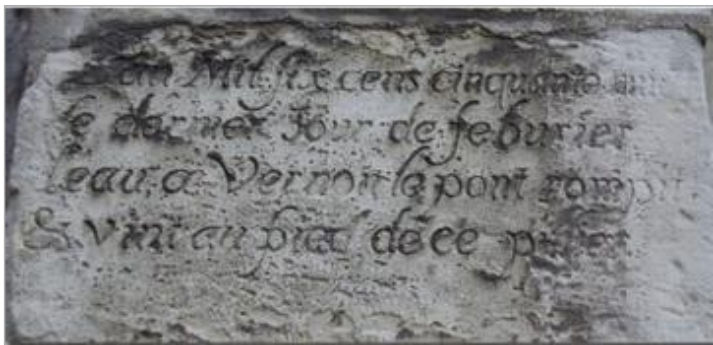 L'an Mil six cens cinquante
le dernier Jour de feburier
leau a Vernon le pont rompit
& vint au pied de ce pilier